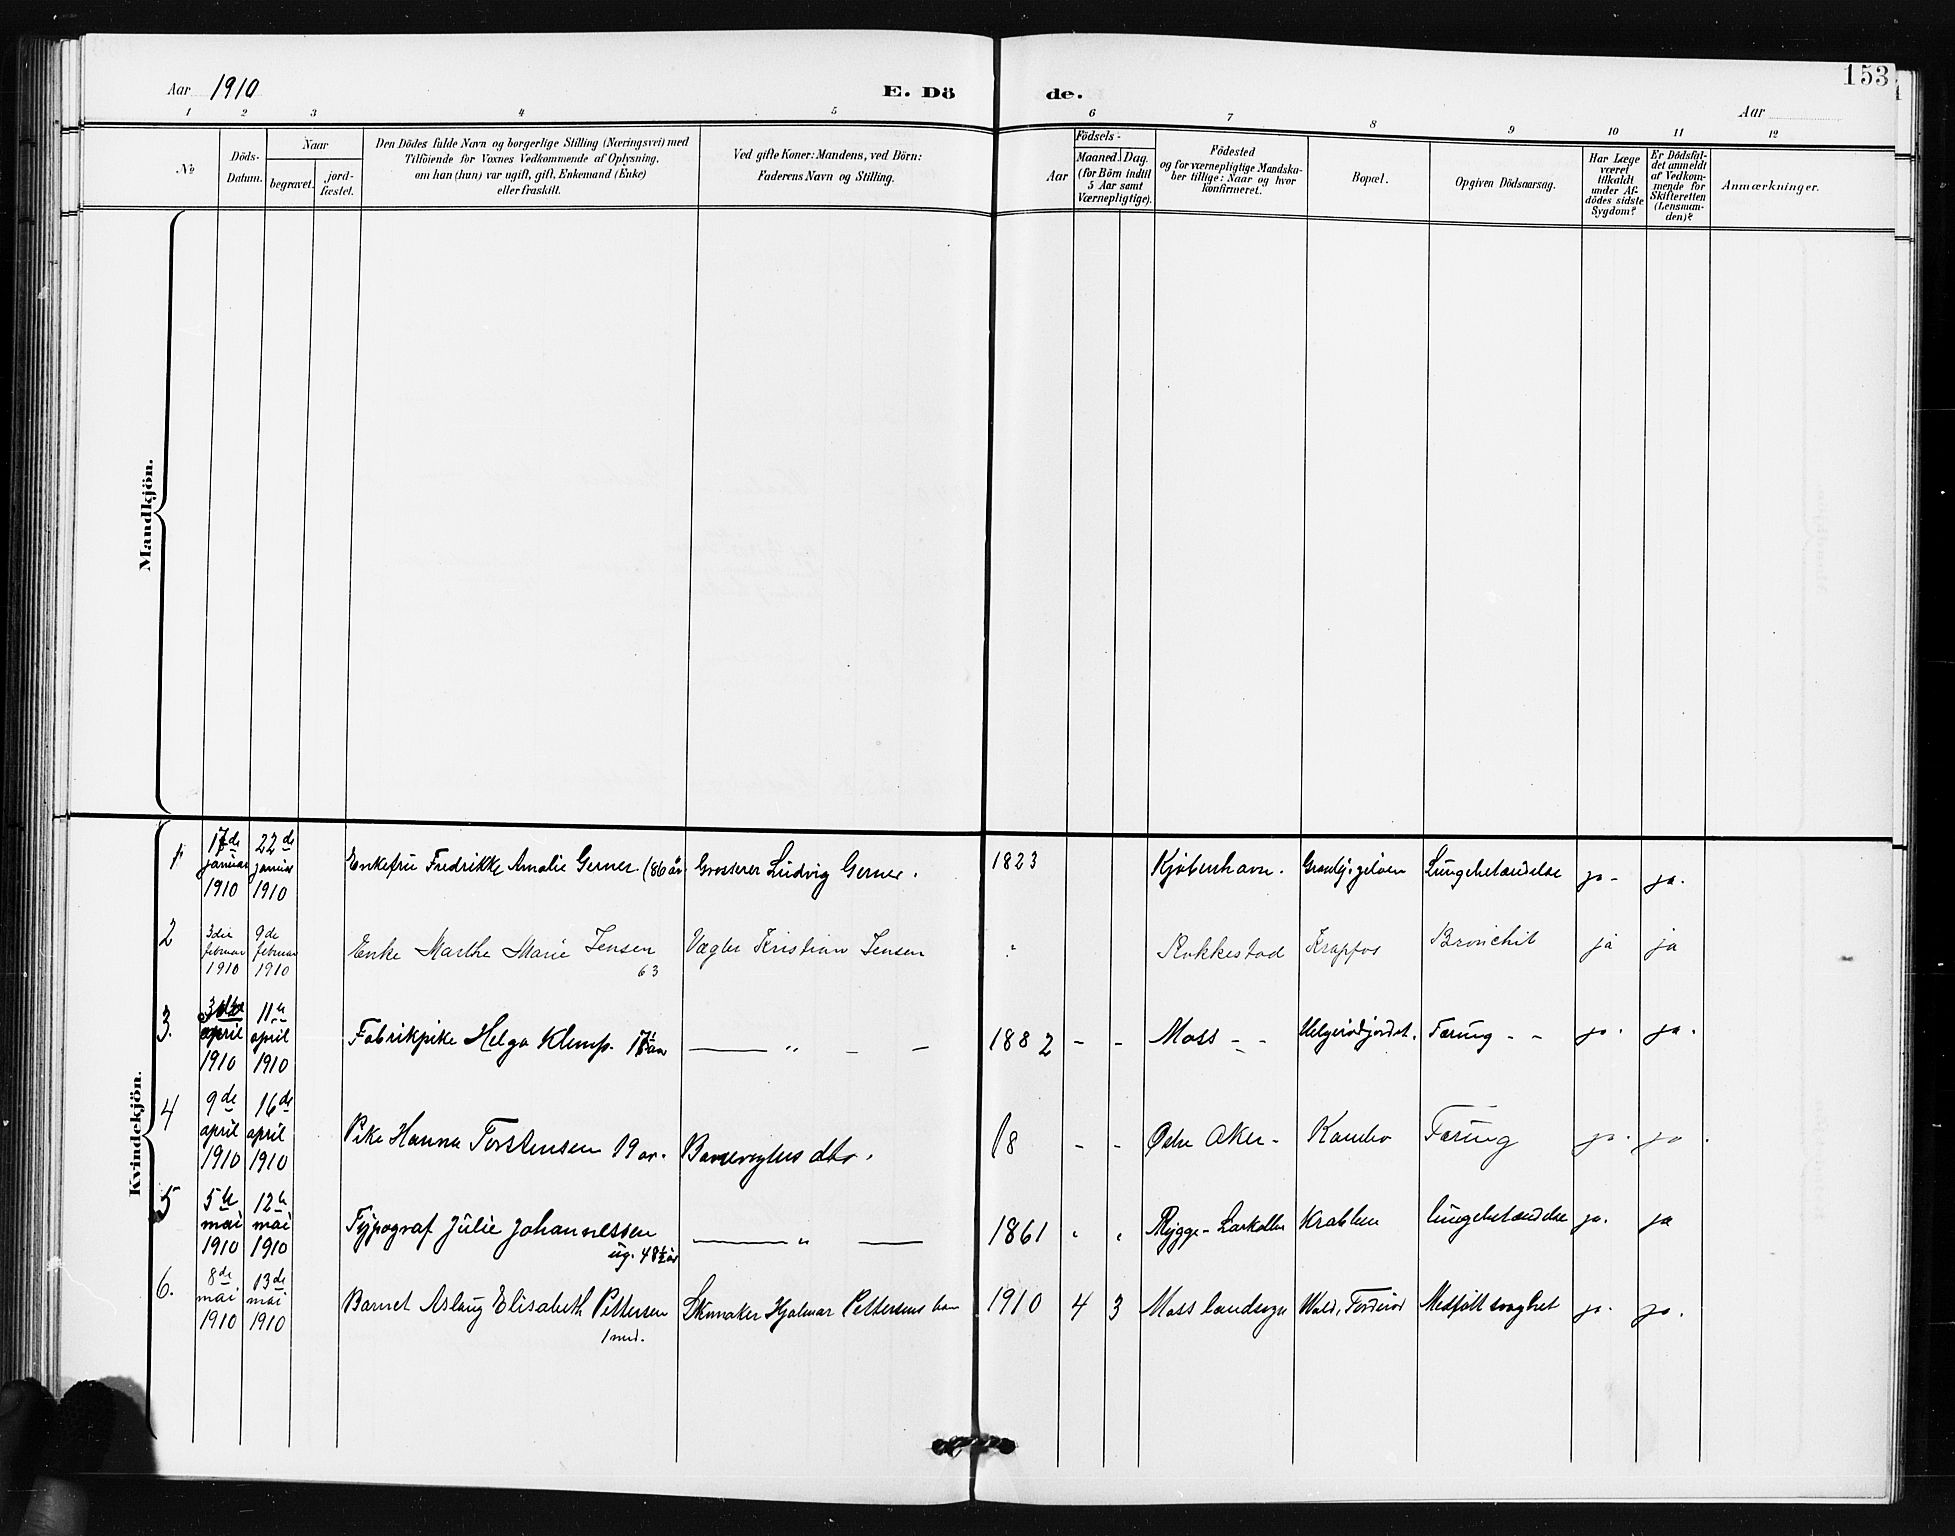 153
Aar 1910
E. Dö
de.
Aar
1 2 3 4 5 6 7 8 9 10 11 12
No
Döds-
Datum.
Naar
begravet.
jord-
fæstet.
Den Dödes fulde Navn og borgerlige Stilling (Næringsvei) med
Tilföiende for Voxnes Vedkommende af Oplysning,
om han (hun) var ugift, gift, Enkemand (Enke)
eller fraskilt.
Ved gifte Koner: Mandens, ved Börn:
Faderens Navn og Stilling.
Födsels-
Aar
Maaned. Dag.
(for Börn indtil
5 Aar samt
Værnepligtige).
Födested
og for værnepligtige Mandska-
ber tillige: Naar og hvor
konfirmeret.
Bopæl.
Opgiven Dödsaarsag.
Har Læge
været
tilkaldt
under Af-
dödes sidste
Sygdom?
Er Dödsfal-
det anmeldt
af Vedkom-
mende for
Skifteretten
(Lensman-
den)?
Anmærkninger.
Mandkjön.
Kvindekjön.
1 17de januar 1910 22de januar 1910 Enkefru Fredrikke Amalie Gerner. (86 år Grosserer Ludvig Gerner. 1823 Kjøbenhavn. Lungebetændelse ja - ja.
2 3die februar 1910 9de februar 1910 Enke Marthe Marie Jensen 63 Vægter Kristian Jensen " Rokkestad Krapfos Bronchit ja ja
3. april 1910 11te april 1910 Fabrikpike Helga Klemp. — " — — 1882 - - Moss - - Helgerødjordet. Tæring - - ja. ja.
4 9de april 1910 16de april 1910 Pike Hanna Torstensen 19 år. dtr. 18 - - Østre Aker - Kambo Tæring ja. ja.
5 5te mai 1910 12te mai 1910 Typograf Julie Johannessen ug. 48½ år — " — 1861 " " Rygge - Larkollen Krabben lungebetændelse ja. ja
6. 8de mai 1910 13de mai 1910 Barnet Aslaug Elisabeth Pettersen 1 mnd. Skomaker Hjalmar Pettersens barn 1910 4 3 Moss landsogn Medfødt svaghet ja. ja.